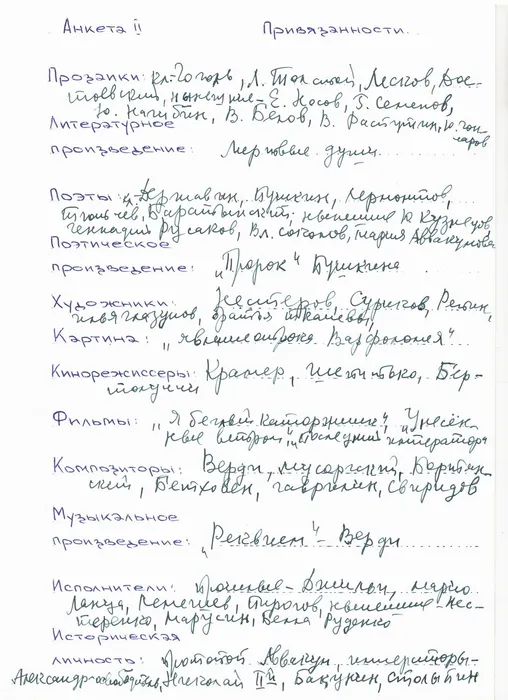 Анкета II Привязанности.
Прозаики: кл-Гоголь, Л. Толстой, Лесков, Дос-
тоевский, нынешние - Е. Носов, Г. Семенов,
Ю. Нагибин, В. Белов, В. Распутин, Ю. Гон
чаров
Литературное
произведение: Мертвые души
Поэты: кл. Державин, Пушкин, Лермонтов,
Тютчев, Баратынский; нынешние Ю Кузнецов
Геннадий Русаков, Вл. Соколов, Мария Аввакумова
Поэтическое
произведение: „Пророк“ Пушкина
Художники: Нестеров, Суриков, Репин,
Илья Глазунов, братья Ткачевы
Картина: „Явление отрока Варфоломея“
Кинорежиссеры: Крамер, Шепитько, Бер-
толуччи
Фильмы: „Я беглый каторжник“, „Унесён-
ные ветром“, „Последний император“
Композиторы: Верди, Мусоргский, Бортнян-
ский, Бетховен, Гаврилин, Свиридов
Музыкальное
произведение: „Реквием“ - Верди
Исполнители: прошлые - Джильи, Марио
Ланца, Ремешев, Пирогов, нынешние - Нес-
теренко, Марусин, Белла Руденко
Историческая
личность: Протопоп Аввакум, императоры -
Александр Николай IIй, Бакунин, Столыпин